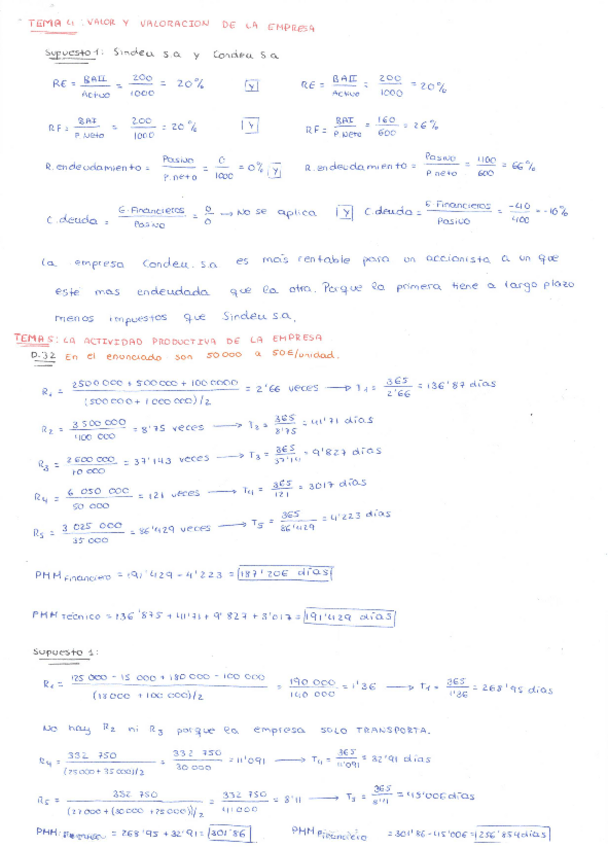 TEMA 4: VALOR Y VALORACIÓN DE LA EMPRESA
Supuesto 1: Sindeu S.a y Condeu S.a
RE = BAII/Activo = 200/1000 = 20% Y RE = BAII/Activo = 200/1000 = 20%
RF = BAI/P.Neto = 200/1000 = 20% Y RF = BAI/P.Neto = 160/600 = 26%
R.endeudamiento = Pasivo/P.neto = 0/1000 = 0% Y R.endeudamiento = Pasivo/P.neto = 400/600 = 66%
C.deuda = G.Financieros/Pasivo = 0/0 → No se aplica Y C.deuda = G.Financieros/Pasivo = -40/400 = -10%
La empresa Condeu.sa es más rentable para un accionista a un que
este mas endeudada que la otra. Porque la primera tiene a largo plazo
menos impuestos que Sindeu S.a.
TEMA 5: LA ACTIVIDAD PRODUCTIVA DE LA EMPRESA
D.32 En el enunciado son 50000 a 50€/unidad.
R1 = 2500000 + 500000 + 1000000/(500000 + 1000000)/2 = 2'66 veces → T1 = 365/2'66 = 136'87 días
R2 = 3500000/400000 = 8'75 veces → T2 = 365/8'75 = 41'71 días
R3 = 2600000/70000 = 37'143 veces → T3 = 365/37'14 = 9'827 días
R4 = 6 050 000/50 000 = 121 veces → T4 = 365/121 = 3'017 días
R5 = 3 025 000/35 000 = 86'429 veces → T5 = 365/86'429 = 4'223 días
PMM Financiero = 191'429 - 4'223 = 187'206 días
PMM Técnico = 136'875 + 41'71 + 9'827 + 3'017 = 191'429 días
Supuesto 1:
R1 = 125 000 - 15 000 + 180 000 - 100 000/(18000 + 100 000)/2 = 190 000/140 000 = 1'36 → T1 = 365/1'36 = 268'95 días
No hay R2 ni R3 porque la empresa SOLO TRANSPORTA.
R4 = 332 750/(25000 + 35000)/2 = 332 750/30 000 = 11'091 → T4 = 365/11'091 = 32'91 días
R5 = 332 750/ = 332 750/41000 = 8'11 → = 365/8'11 = 45'006 días
PMM = 268'95 + 32'91 = 301'86 PMM Financiero = 301'86 - 45'006 = 256'854 días